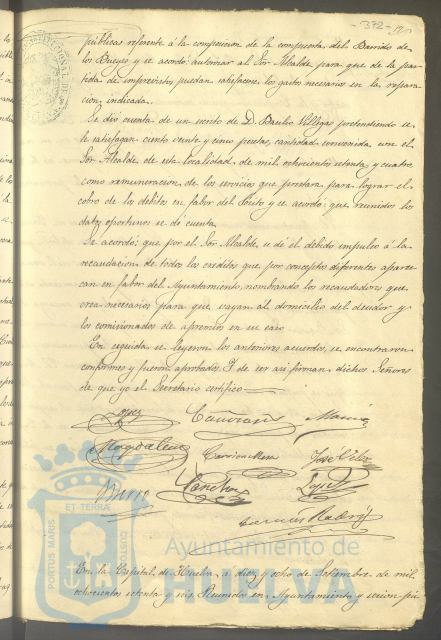 372
públicas referente á la composicion de la compuerta del Barrido de
los Bueyes y se acordó autorizar al Sor Alcalde para que de la par-
tida de imprevistos puedan satisfacerse los gastos necesarios en la repara-
cion indicada.
Se dió cuenta de un escrito de D. Braulio Villegas pretendiendo se
le satisfagan ciento veinte y cinco pesetas, cantidad convenida con el
Sor Alcalde de esta localidad de mil ochocientos setenta y cuatro
como remuneracion de los servicios que prestara para lograr el
cobro de los debitos en favor del Pósito y se acordó: que reunidos los
datos oportunos se dé cuenta.
Se acordó: que por el Sor Alcalde, se dé el debido impulso á la
recaudacion de todos los creditos que por conceptos diferentes apare-
can en favor del Ayuntamiento, nombrando los recaudadores que
crea necesarios para que vayan al domicilio del deudor y
los comisionados de apremios en su caso
En seguida se leyeron los anteriores acuerdos, se encontraron
conformes y fueron aprobados. Y de ser asi firman dichos Señores
de que yo el Secretario certifico
Lopez
Magdalena Carrion Mora José
Sanchez
En la Capital de Huelva á diez y ocho de Setiembre de mil
ochocientos setenta y seis Reunidos en Ayuntamiento y sesion
PORTUS MARIS ET TERRÆ CUSTODIA
Ayuntamiento de
HUELVA